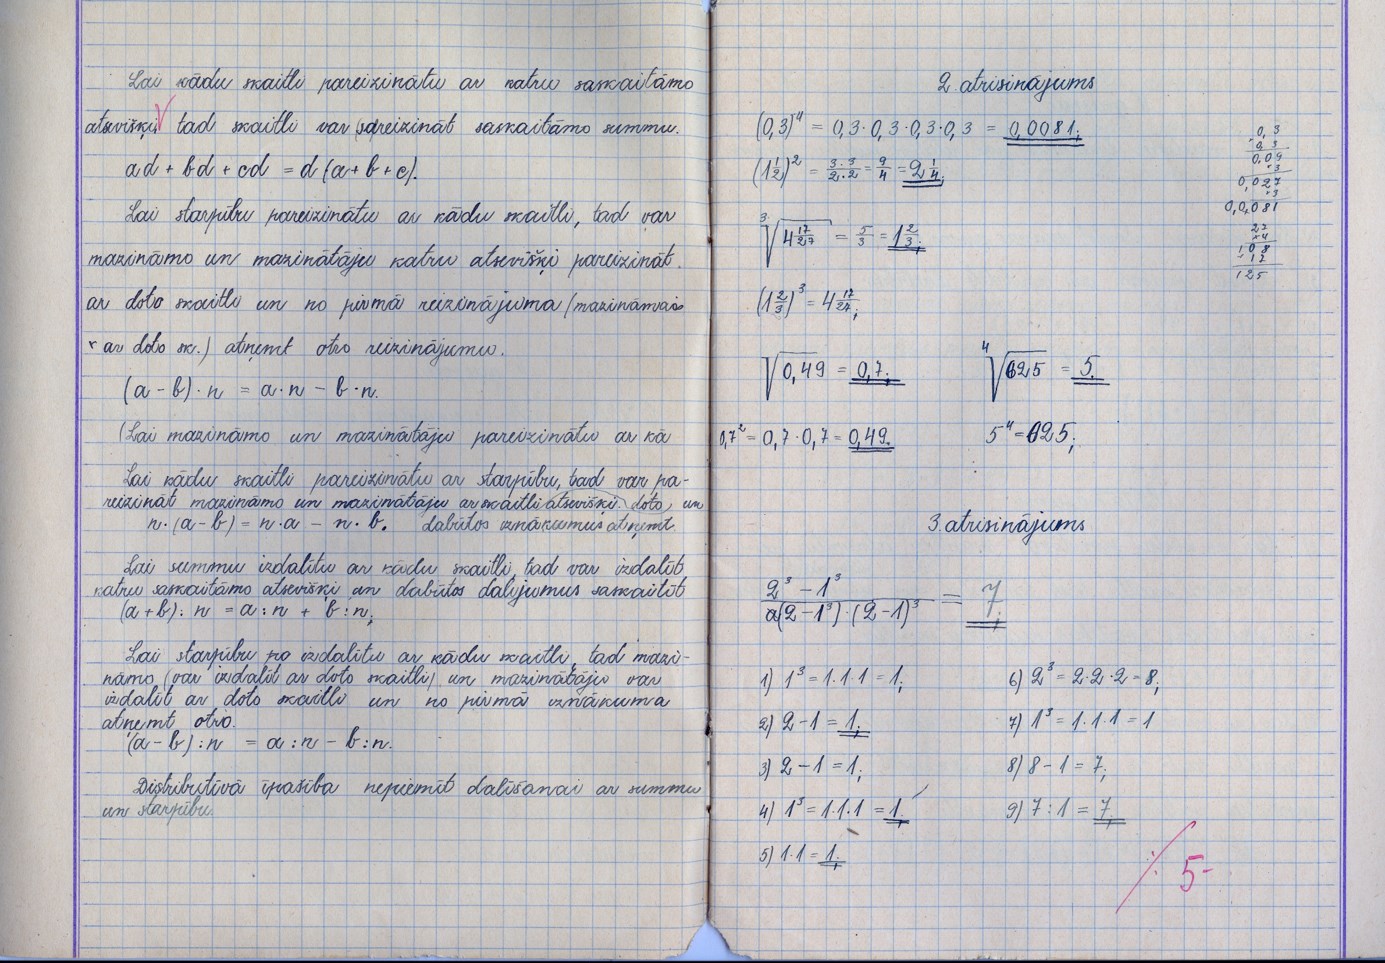 Lai kādu skaitli pareizinātu ar katru saskaitāmo
atsevišķi tad skaitli var sareizināt saskaitāmo summu.
ad + bd + cd = d (a + b + c).
Lai starpību pareizinātu ar kādu skaitli, tad var
mazināmo un mazinātāju katru atsevišķi pareizināt
ar doto skaitli un no pirmā reizinājuma (mazināmais
× ar doto sk.) atņemt otro reizinājumu.
(a - b) · n = a · n - b · n.
(Lai mazināmo un mazinātāju pareizinātu ar kā
Lai kādu skaitli pareizinātu ar starpību, tad var pa-
reizināt mazināmo un mazinātāju ar skaitli atsevišķi doto, un
n · (a - b) = n · a - n · b. dabūtos iznākumus atņemt.
Lai summu izdalītu ar kādu skaitli, tad var izdalīt
katru saskaitāmo atsevišķi un dabūtos dalījumus saskaitīt
(a + b) : n = a : n + b : n;
Lai starpību pa izdalītu ar kādu skaitli, tad mazi-
nāmo (var izdalīt ar doto skaitli) un mazinātāju var
izdalīt ar doto skaitli un no pirmā iznākuma
atņemt otro.
(a - b) : n = a : n - b : n.
Distributīvā īpašība nepiemīt dalīšanai ar summu
un starpību.
2. atrisinājums
(0,3)⁴ = 0,3 · 0,3 · 0,3 · 0,3 = 0,0081;
(1 1/2)² = 3·3/2·2 = 9/4 = 2 1/4;
³√4 17/27 = 5/3 = 1 2/3;
(1 2/3)³ = 4 17/27;
√0,49 = 0,7; ⁴√625 = 5.
0,7² = 0,7 · 0,7 = 0,49. 5⁴ = 625;
0,3
· 0,3
0,09
× 3
0,027
× 3
0,0081
27
× 4
108
+ 17
125
3. atrisinājums
2³ - 1³ / (2 - 1³) · (2 - 1)³ = 7;
1) 1³ = 1.1.1 = 1;
2) 2 - 1 = 1;
3) 2 - 1 = 1;
4) 1³ = 1.1.1 = 1;
5) 1·1 = 1;
6) 2³ = 2·2·2 = 8;
7) 1³ = 1.1.1 = 1
8) 8 - 1 = 7;
9) 7 : 1 = 7
5-